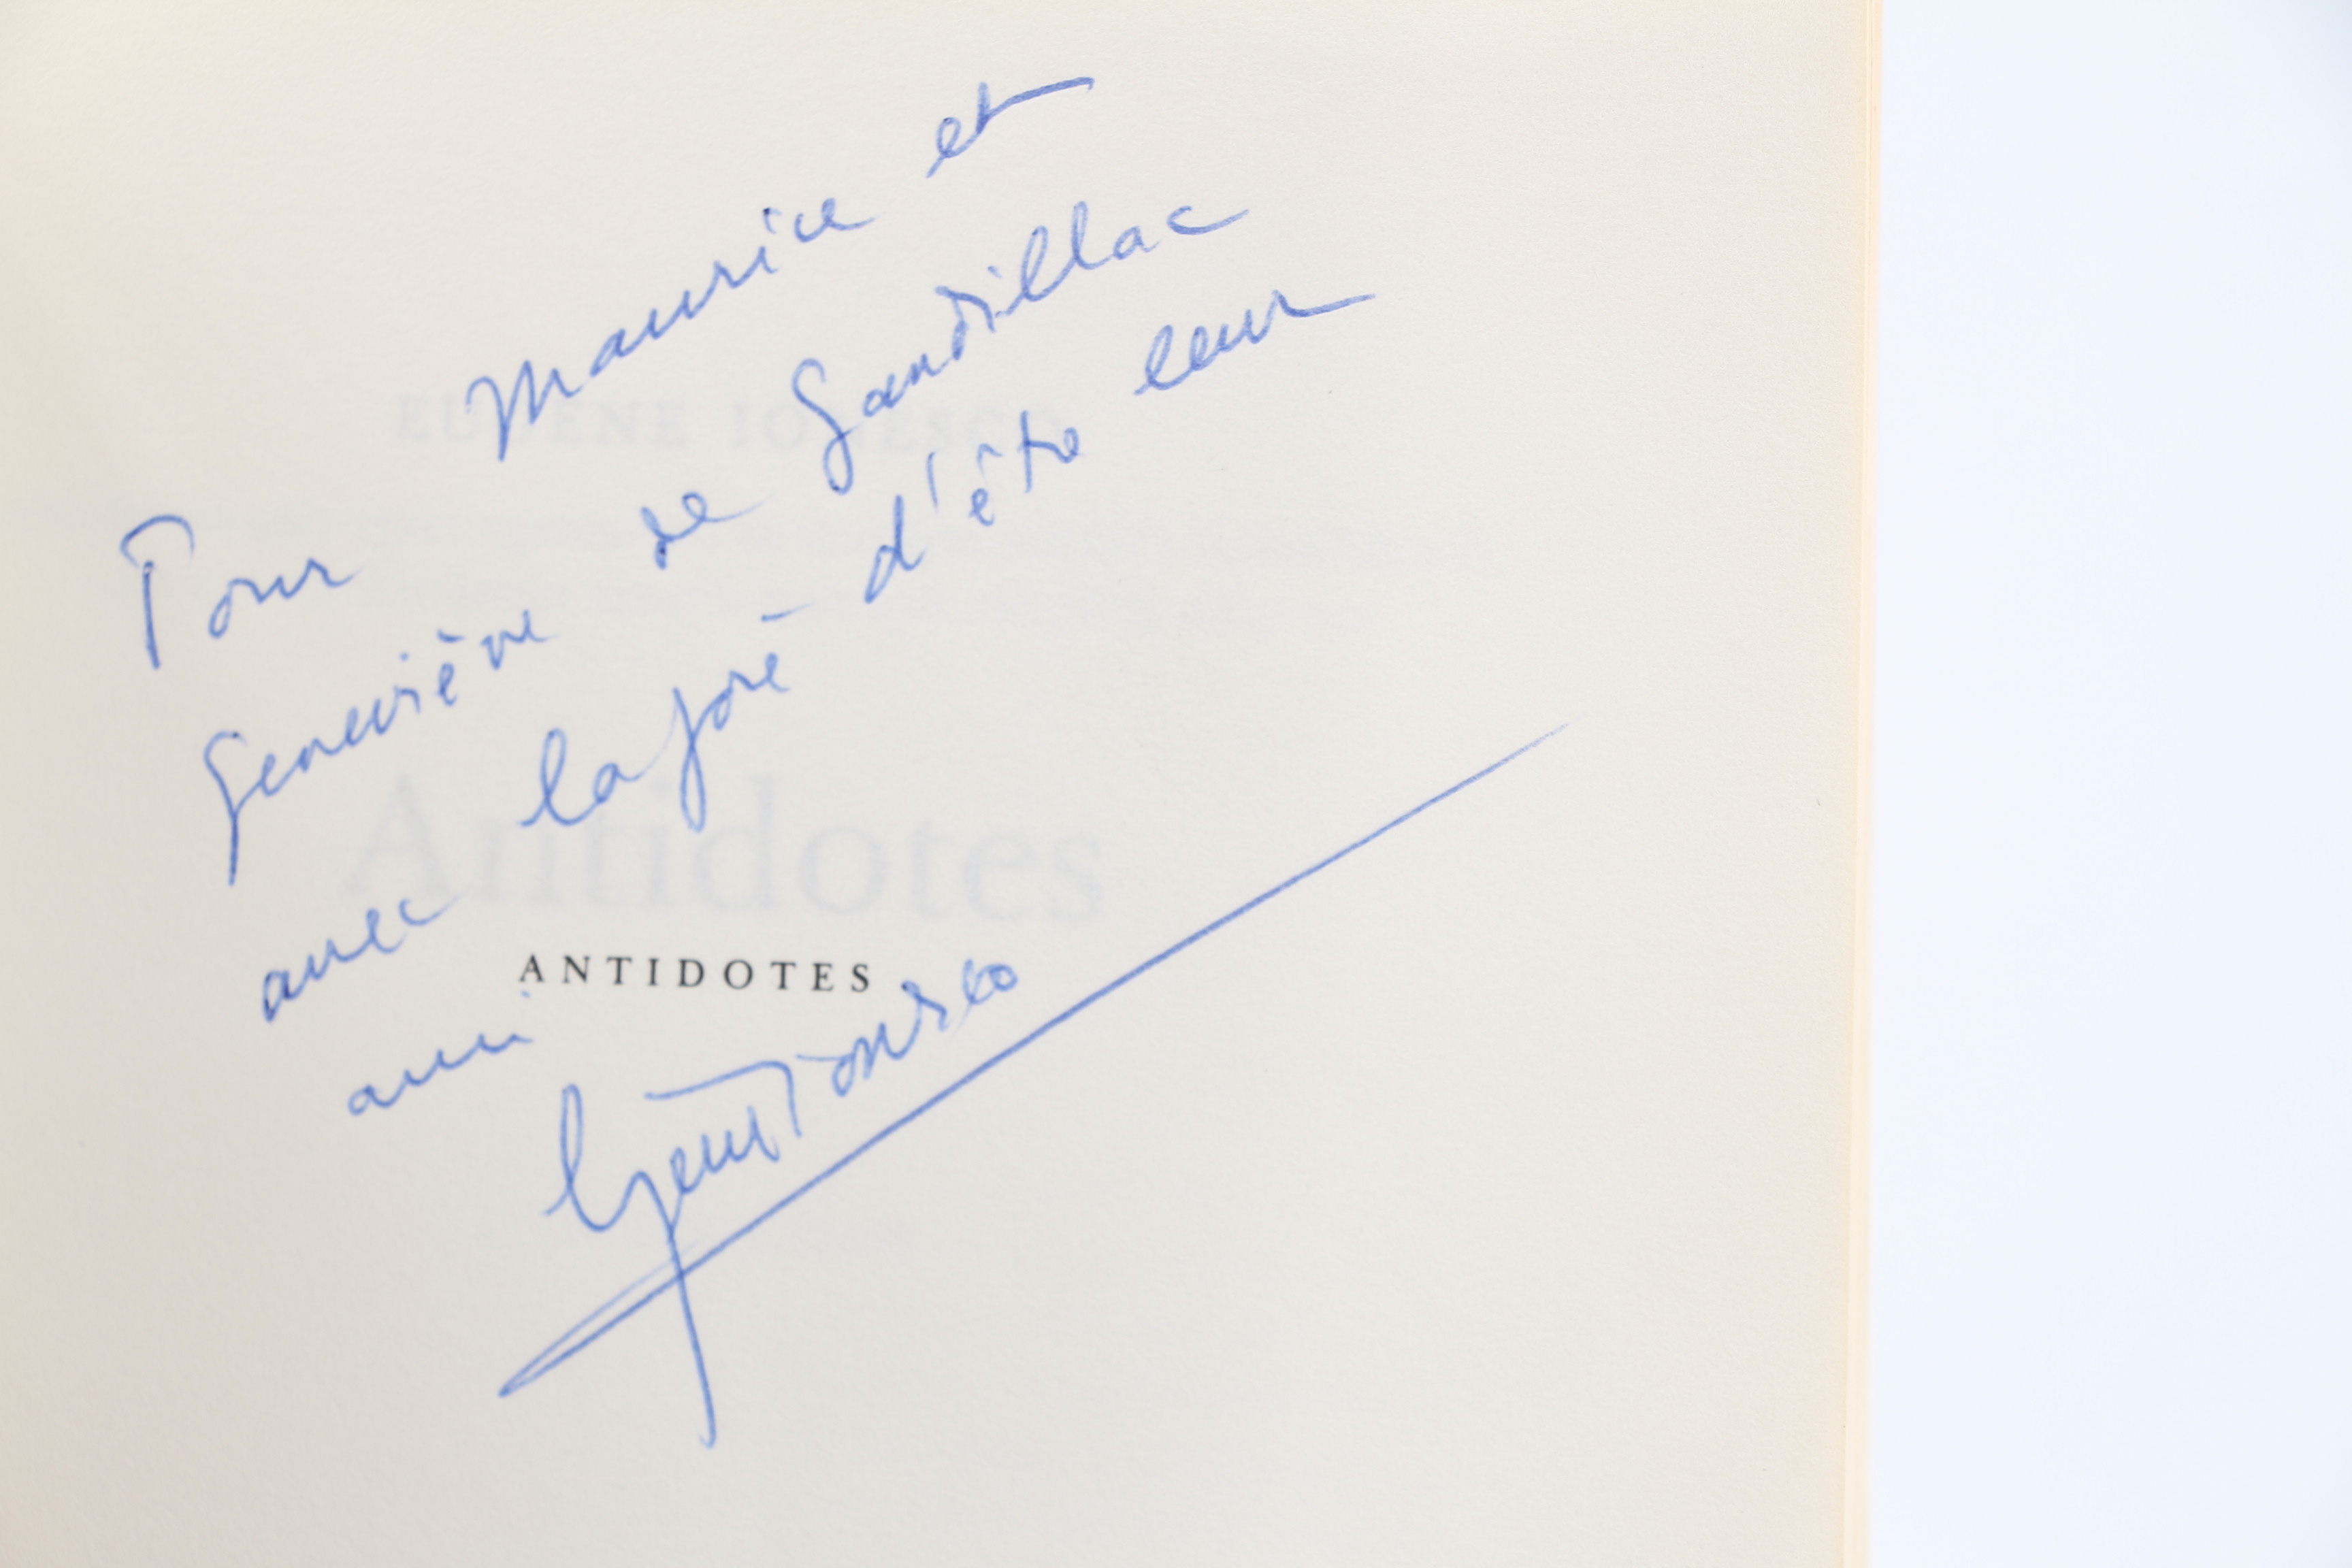 Pour Maurice et
Geneviève de Gandillac
avec la joie d'être leur
ami
ANTIDOTES
Eugène Ionesco
EUGÈNE IONESCO
Antidotes